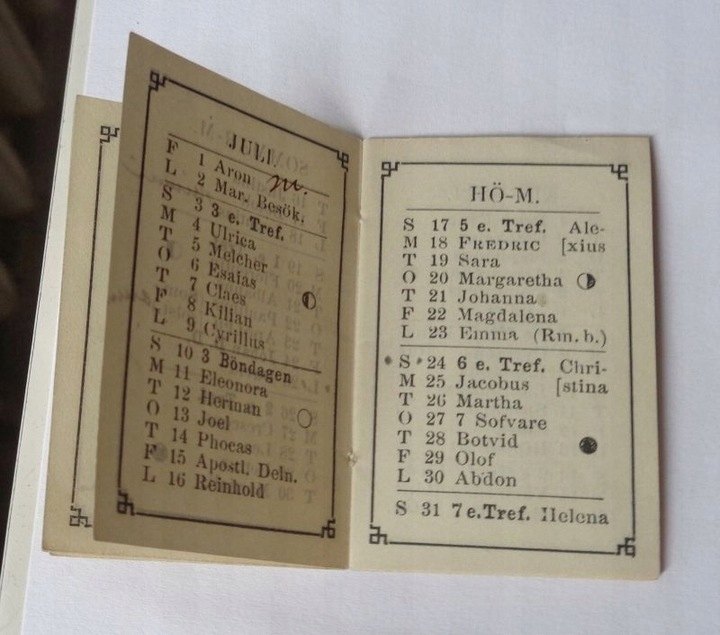 JULI
m.
F 1 Aron
L 2 Mar. Besök.
S 3 3 e. Tref.
M 4 Ulrica
T 5 Melcher
O 6 Esaias
T 7 Claës
F 8 Kilian
L 9 Cyrillus
S 10 3 Böndagen
M 11 Eleonora
T 12 Herman
O 13 Joel
T 14 Phocas
F 15 Apostl. Deln.
L 16 Reinhold
HÖ-M.
S 17 5 e. Tref. Ale-
M 18 FREDRIC [xius
T 19 Sara
O 20 Margaretha
T 21 Johanna
F 22 Magdalena
L 23 Emma (Rm. b.)
S 24 6 e. Tref. Chri-
M 25 Jacobus [stina
T 26 Martha
O 27 7 Sofvare
T 28 Botvid
F 29 Olof
L 30 Abdon
S 31 7 e. Tref. Helena